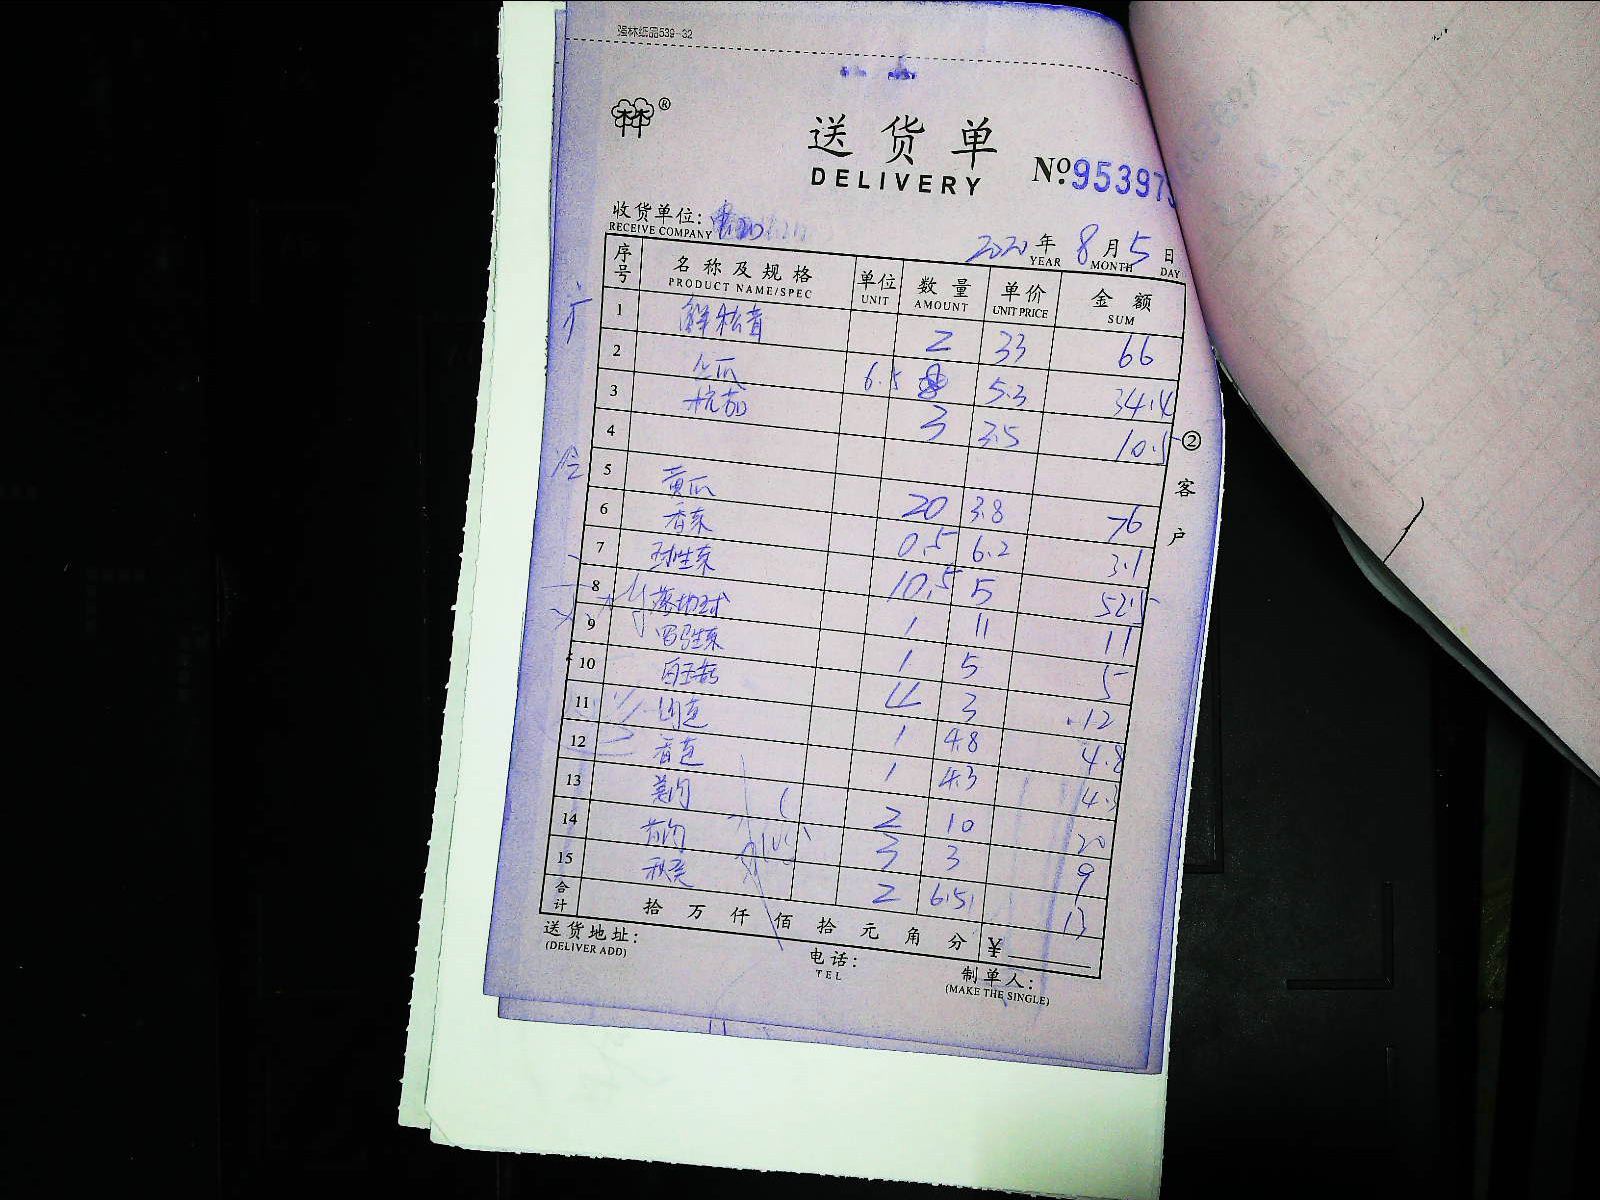 强林纸品539-32
®
送货单
DELIVERY
№.95397
收货单位:
RECEIVE COMPANY
2020 年 8 月 5 日
YEAR MONTH DAY
序号 名称及规格 单位 数量 单价 金额
PRODUCT NAME/SPEC UNIT AMOUNT UNIT PRICE SUM
1 鲜松茸 2 33 66
2 6.5 5.3 34.4
3 杭茄 3 3.5 10.5
4
冷
5 黄瓜 20 3.8 76
6 香菜 0.5 6.2 3.1
7 球生菜 10.5 5 52.5
8 1 11 11
9 罗马生菜 1 5 5
10 白玉菇 4 3 12
11 1 4.8 4.8
12 1 4.3 4.3
13 2 10 20
14 3 3 9
15 秋葵 2 6.5 13
合计 拾 万 仟 佰 拾 元 角 分 ¥
②客户
送货地址:
(DELIVER ADD)
电话:
TEL
制单人:
(MAKE THE SINGLE)